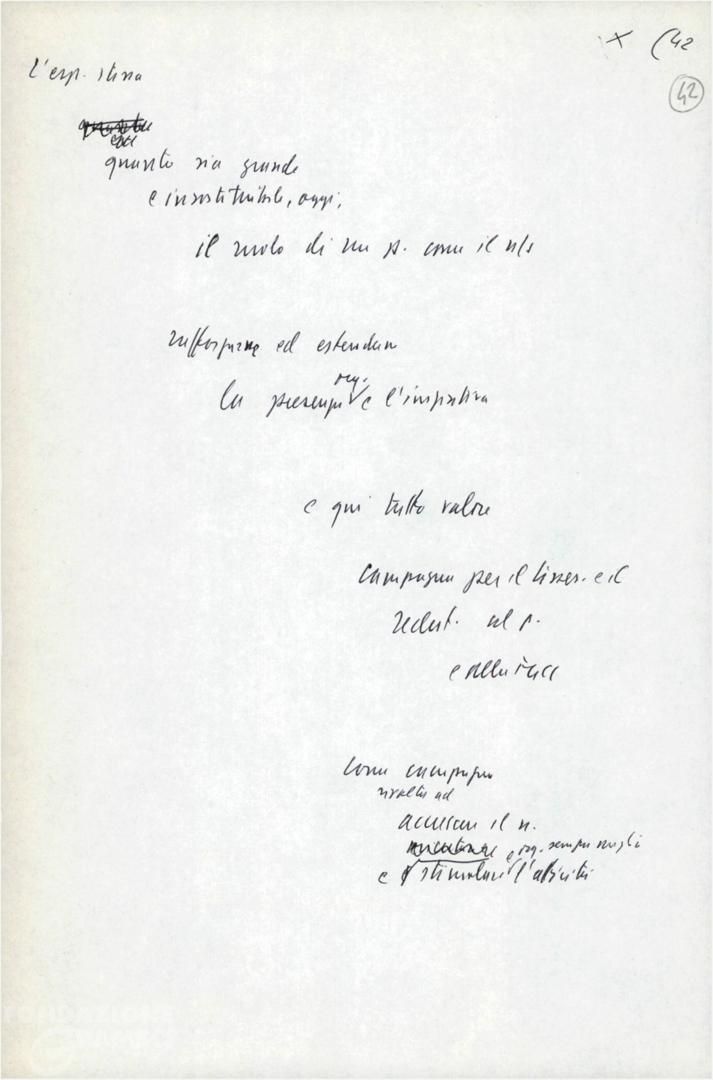 x (42
42
l'esp. stessa
quanto sia grande
e insostituibile, oggi,
il ruolo di un p. come il n/s
rafforzare ed estendere
org.
la presenza e l'iniziativa
e qui tutto valore
campagna per il tesser. e il
reclut. al p.
e alla FGCI
come campagna
rivolta ad
accrescere il n.
e org. sempre meglio
e stimolare l'attività